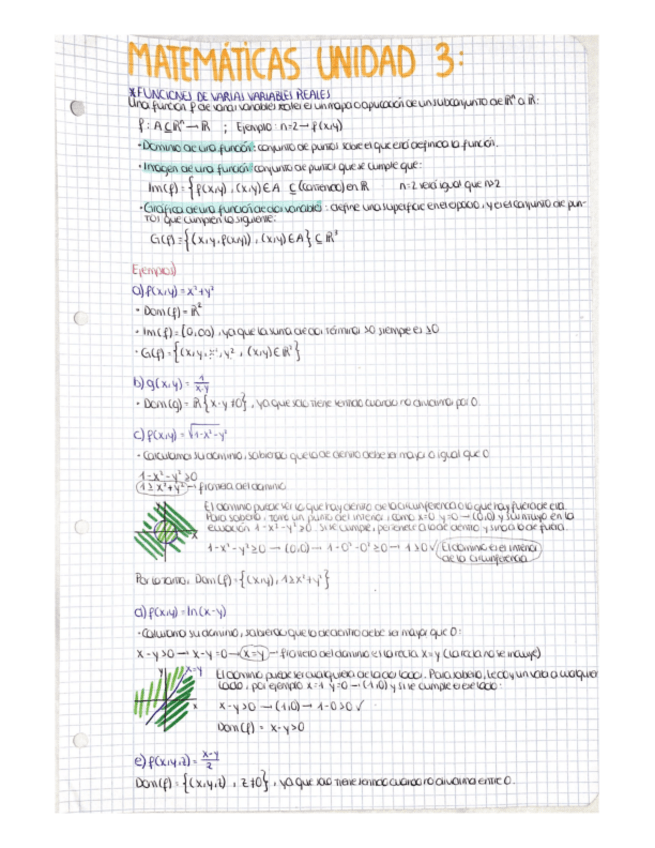 MATEMÁTICAS UNIDAD 3:
*FUNCIONES DE VARIAS VARIABLES REALES
Una función f de varias variables reales es un mapa o aplicación de un subconjunto de ℝⁿ a ℝ:
f: A⊆ℝⁿ → ℝ ; Ejemplo: n=2 → f(x,y)
• Dominio de una función: conjunto de puntos sobre el que está definida la función.
• Imagen de una función: conjunto de puntos que se cumple que:
Im(f) = {f(x,y), (x,y)∈A ⊆ (contenido) en ℝ n=2 será igual que n>2
• Gráfica de una función de dos variables: define una superficie en el espacio, y es el conjunto de pun-
tos que cumplen lo siguiente:
G(f) = {(x,y,f(x,y)), (x,y)∈A} ⊆ ℝ³
Ejemplos)
a) f(x,y) = x²+y²
• Dom(f) = ℝ²
• Im(f) = [0,∞), ya que la suma de dos términos so siempre es ≥0
• G(f) = {(x,y,x², y², (x,y)∈ℝ²}
b) g(x,y) = 1/x-y
• Dom(g) = ℝ{x-y≠0}, ya que solo tiene sentido cuando no dividimos por 0.
c) f(x,y) = √1-x²-y²
• Calculamos su dominio, sabiendo que lo de dentro debe ser mayor o igual que 0
1-x²-y²≥0
1≥x²+y² → frontera del dominio
El dominio puede ser lo que hay dentro de la circunferencia o lo que hay fuera de ella.
Para saberlo, tomo un punto del interior, como x=0 y=0 → (0,0) y sustituyo en la
ecuación 1-x²-y²≥0. Si se cumple, pertenece a lo de dentro y sino a lo de fuera.
x
1-x²-y²≥0 → (0,0) → 1-0²-0²≥0 → 1≥0 ✓ El dominio es el interior
de la circunferencia
Por lo tanto, Dom(f) = {(x,y), 1≥x²+y²}
d) f(x,y) = ln(x-y)
• Calculo su dominio, sabiendo que lo de dentro debe ser mayor que 0:
x-y>0 → x-y=0 → x=y → frontera del dominio es la recta x=y (la recta no se incluye)
y x=y
El dominio puede ser cualquiera de los dos lados. Para saberlo, le doy un valor a cualquier
lado, por ejemplo x=1 y=0 → (1,0) y si se cumple es ese lado:
x
x-y>0 → (1,0) → 1-0>0 ✓
Dom(f) = x-y>0
e) f(x,y,z) = x-y/z
Dom(f) = {(x,y,z), z≠0}, ya que solo tiene sentido cuando no dividimos entre 0.